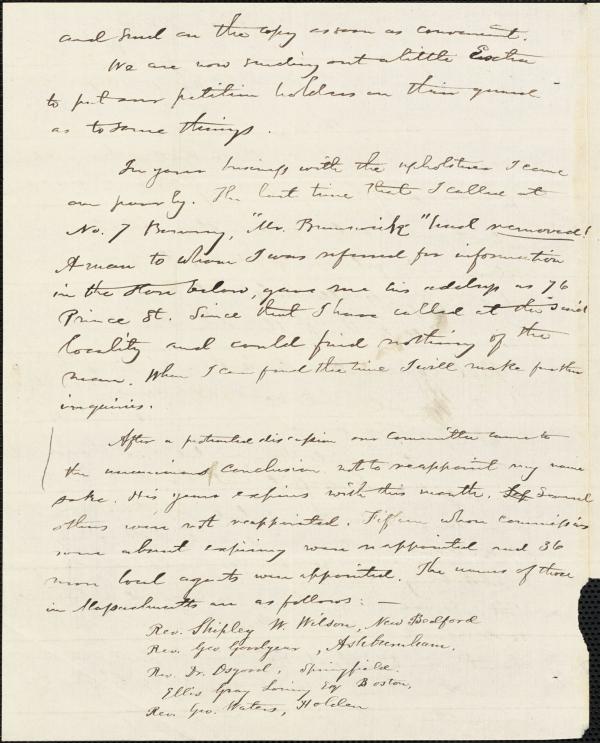 and send on the copy as soon as convenient.
We are now sending out a little Extra
to put our petition holders on their guard
as to some things.
In your business with the upholsterer I come
on poorly. The last time that I called at
No. 7 Bowery, "Mr. Brunswick" had removed!
A man to whom I was referred for information
in the store below, gave me his address as 76
Prince St. Since that I have called at the said
locality and could find nothing of the
man. When I can find the time I will make further
inquiries.
After a protracted discussion our committee came to
the unanimous conclusion not to reappoint my name
sake. His year expires with this month. Several
others were not reappointed. Fifteen whose commissions
were about expiring were reappointed and 36
more local agents were appointed. The names of those
in Massachusetts are as follows: —
Rev. Shipley W. Wilson, New Bedford
Rev. Geo Goodyear, Ashburnham.
Rev. Dr. Osgood, Springfield.
Ellis Gray Loring Esq Boston,
Rev. Geo. Waters, Holden